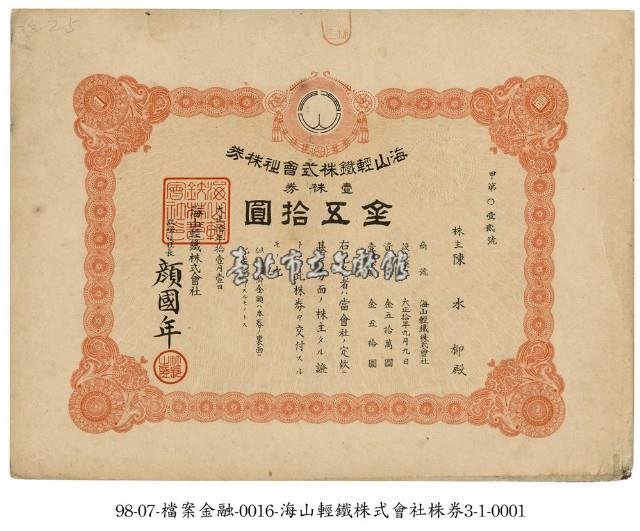 海山輕鐵株式會社株券
壹株券
金五拾圓
甲第〇壹貳號
株主 陳水柳殿
商號 海山輕鐵株式會社
大正拾年九月九日
金五拾萬圓
壹 金五拾圓
右 者ハ當會社ノ定款ニ
基 面ノ株主タル證
トシ 此株券ヲ交付スル
モ
金額ハ本券ノ裏面ニ
スルモノトス
大正 年拾壹月壹日
海山輕鐵株式會社
顏國年
臺北市立文獻館
98-07-檔案金融-0016-海山輕鐵株式會社株券3-1-0001